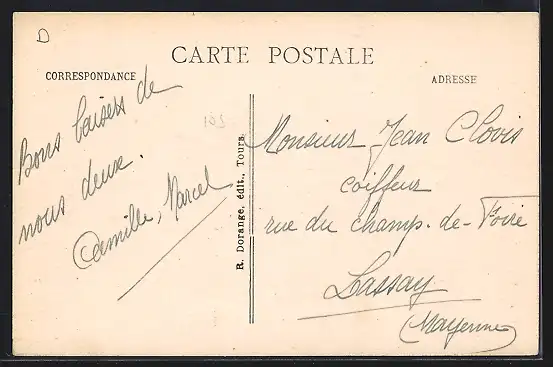 D
CARTE POSTALE
CORRESPONDANCE
ADRESSE
103
Bons baisers de
nous deux.
Camille, Marcel
R. Dorange, édit., Tours.
Monsieur Jean Clovis
coiffeur
rue du champ-de-Foire
Lassay
(Mayenne)